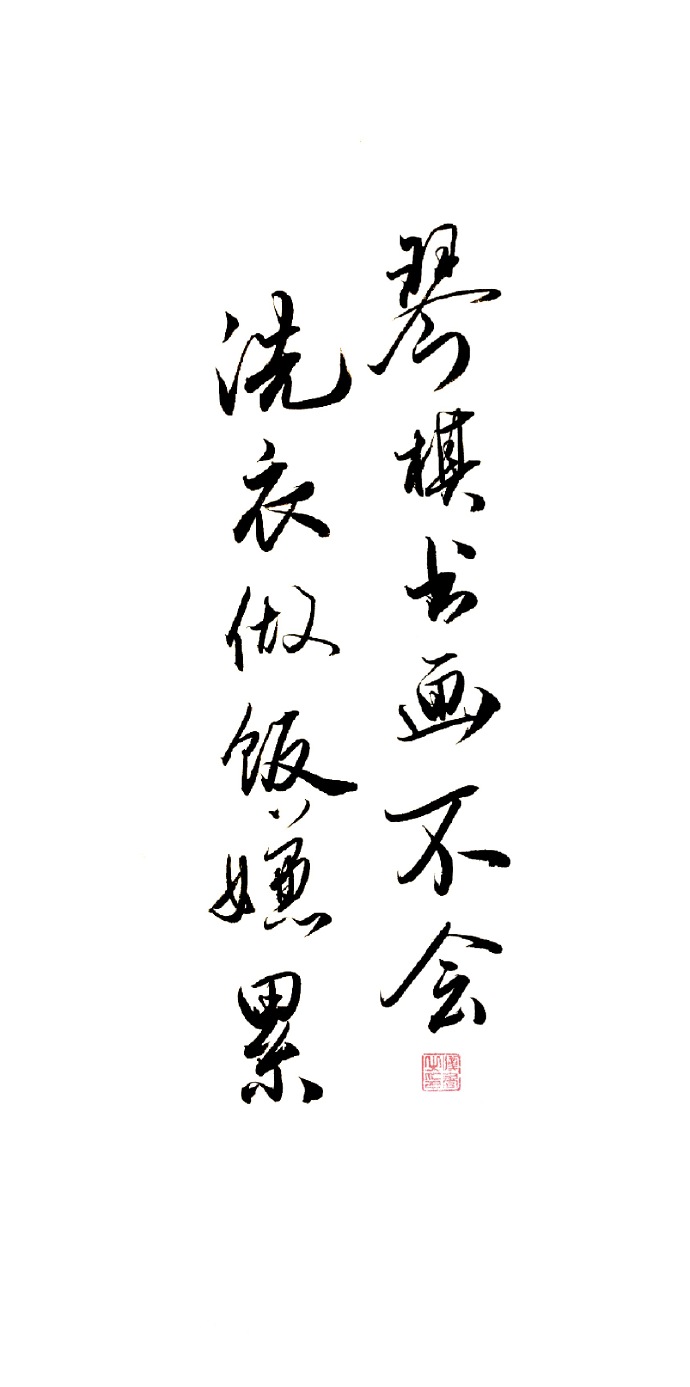 琴棋书画不会
洗衣做饭嫌累